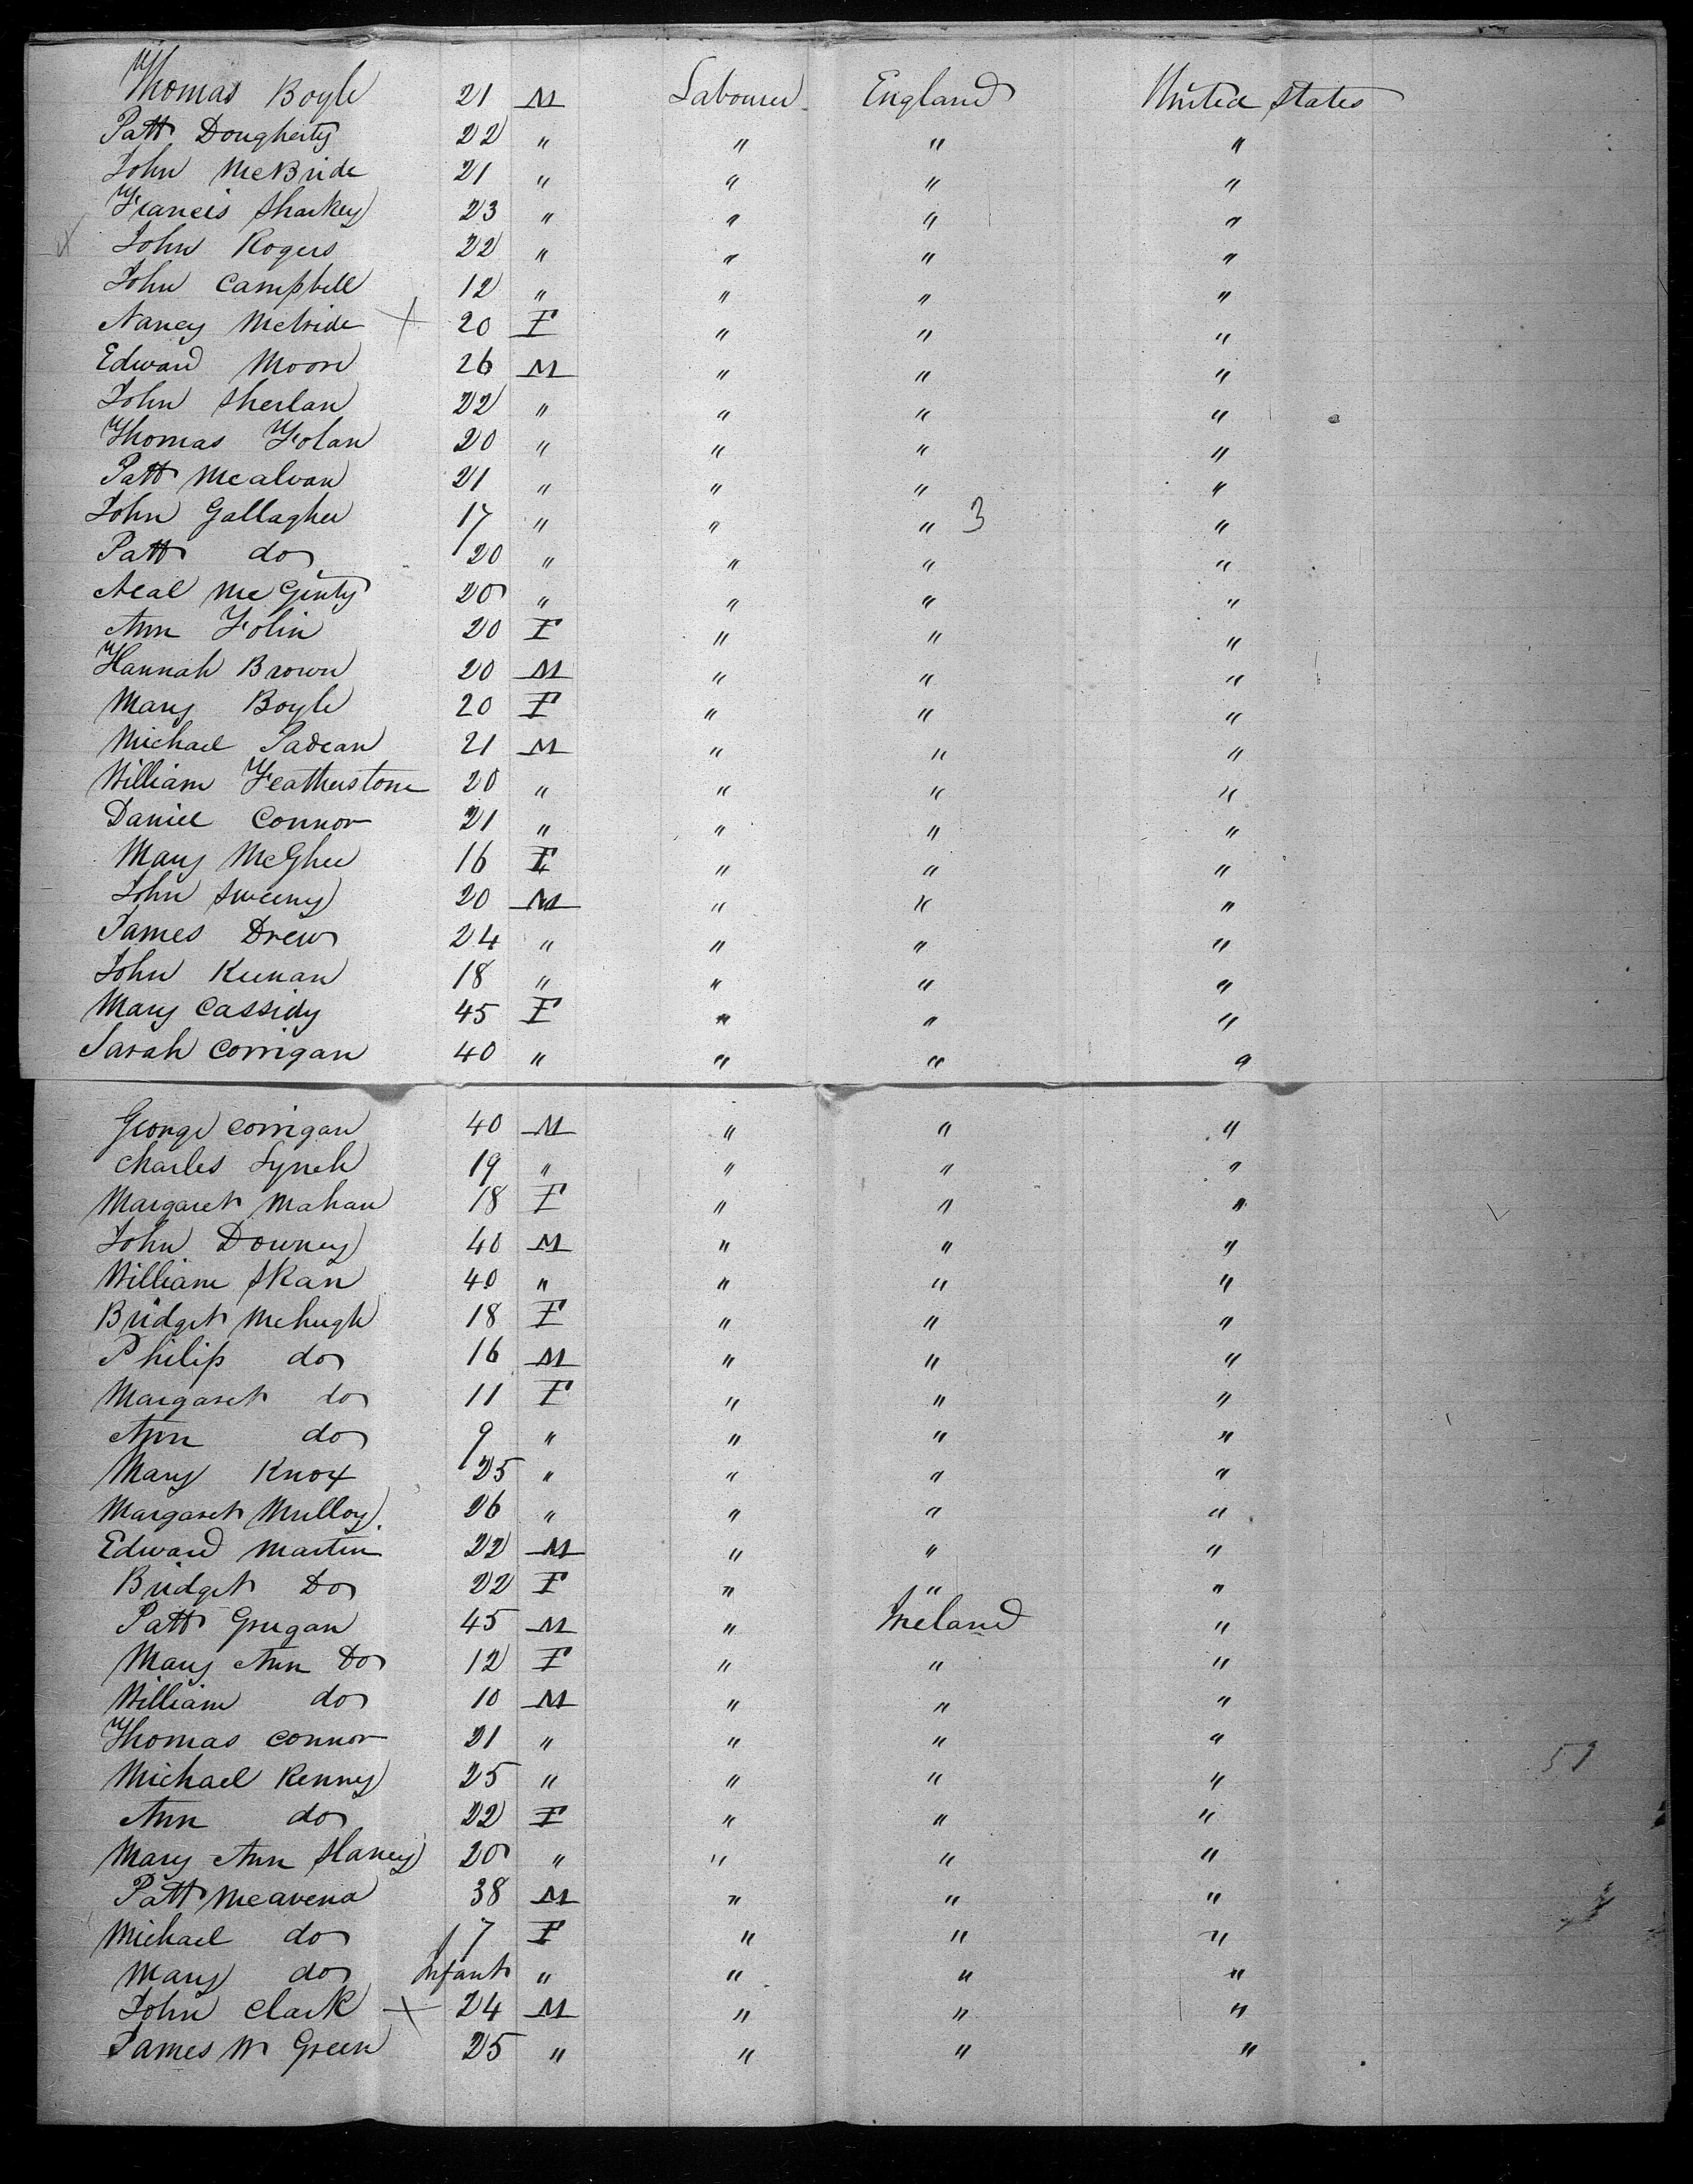 Thomas Boyle 21 M Labourer England United States
Patt Dougherty 22 " " " "
John McBride 21 " " " "
Francis Sharkey 23 " " " "
John Rogers 22 " " " "
John Campbell 12 " " " "
Nancy McBride X 20 F " " "
Edward Moore 26 M " " "
John Sherlan 22 " " " "
Thomas Folan 20 " " " "
Patt Mcalvan 21 " " " "
John Gallagher 17 " " " 3 "
Patt do 20 " " " "
Neal McGinty 20 " " " "
Ann Folin 20 F " " "
Hannah Brown 20 M " " "
Mary Boyle 20 F " " "
Michael Padean 21 M " " "
William Featherstone 20 " " " "
Daniel Connor 21 " " " "
Mary McGhee 16 F " " "
John Sweeny 20 M " " "
James Drew 24 " " " "
John Keenan 18 " " " "
Mary Cassidy 45 F " " "
Sarah Corrigan 40 " " " "
George Corrigan 40 M " " "
Charles Lynch 19 " " " "
Margaret Mahan 18 F " " "
John Downey 40 M " " "
William Skan 40 " " " "
Bridget Mchugh 18 F " " "
Philip do 16 M " " "
Margaret do 11 F " " "
Ann do 9 " " " "
Mary Knox 25 " " " "
Margaret Mulloy 26 " " " "
Edward Martin 22 M " " "
Bridget Do 22 F " " "
Patt Grugan 45 M " Ireland "
Mary Ann Do 12 F " " "
William do 10 M " " "
Thomas Connor 21 " " " "
Michael Kenny 25 " " " "
Ann do 22 F " " "
Mary Ann Haney 20 " " " "
Patt Mcavena 38 M " " "
Michael do 7 F " " "
Mary do Infant " " " "
John Clark X 24 M " " "
James W Green 25 " " " "